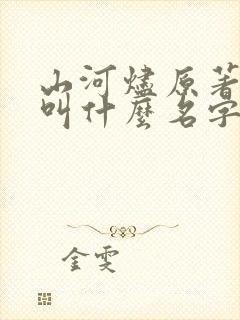 山河燼原著
叫什麼名字
金雯